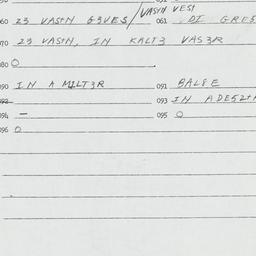 060 23 VASIN G3VES / VASIN VESI 061 DI GRES
070 23 VASIN, IN KALT3 VAS3R
080 O
090 IN A MILT3R 091 BALEE
092 093 IN ADES2
094 — 095 O
096 O